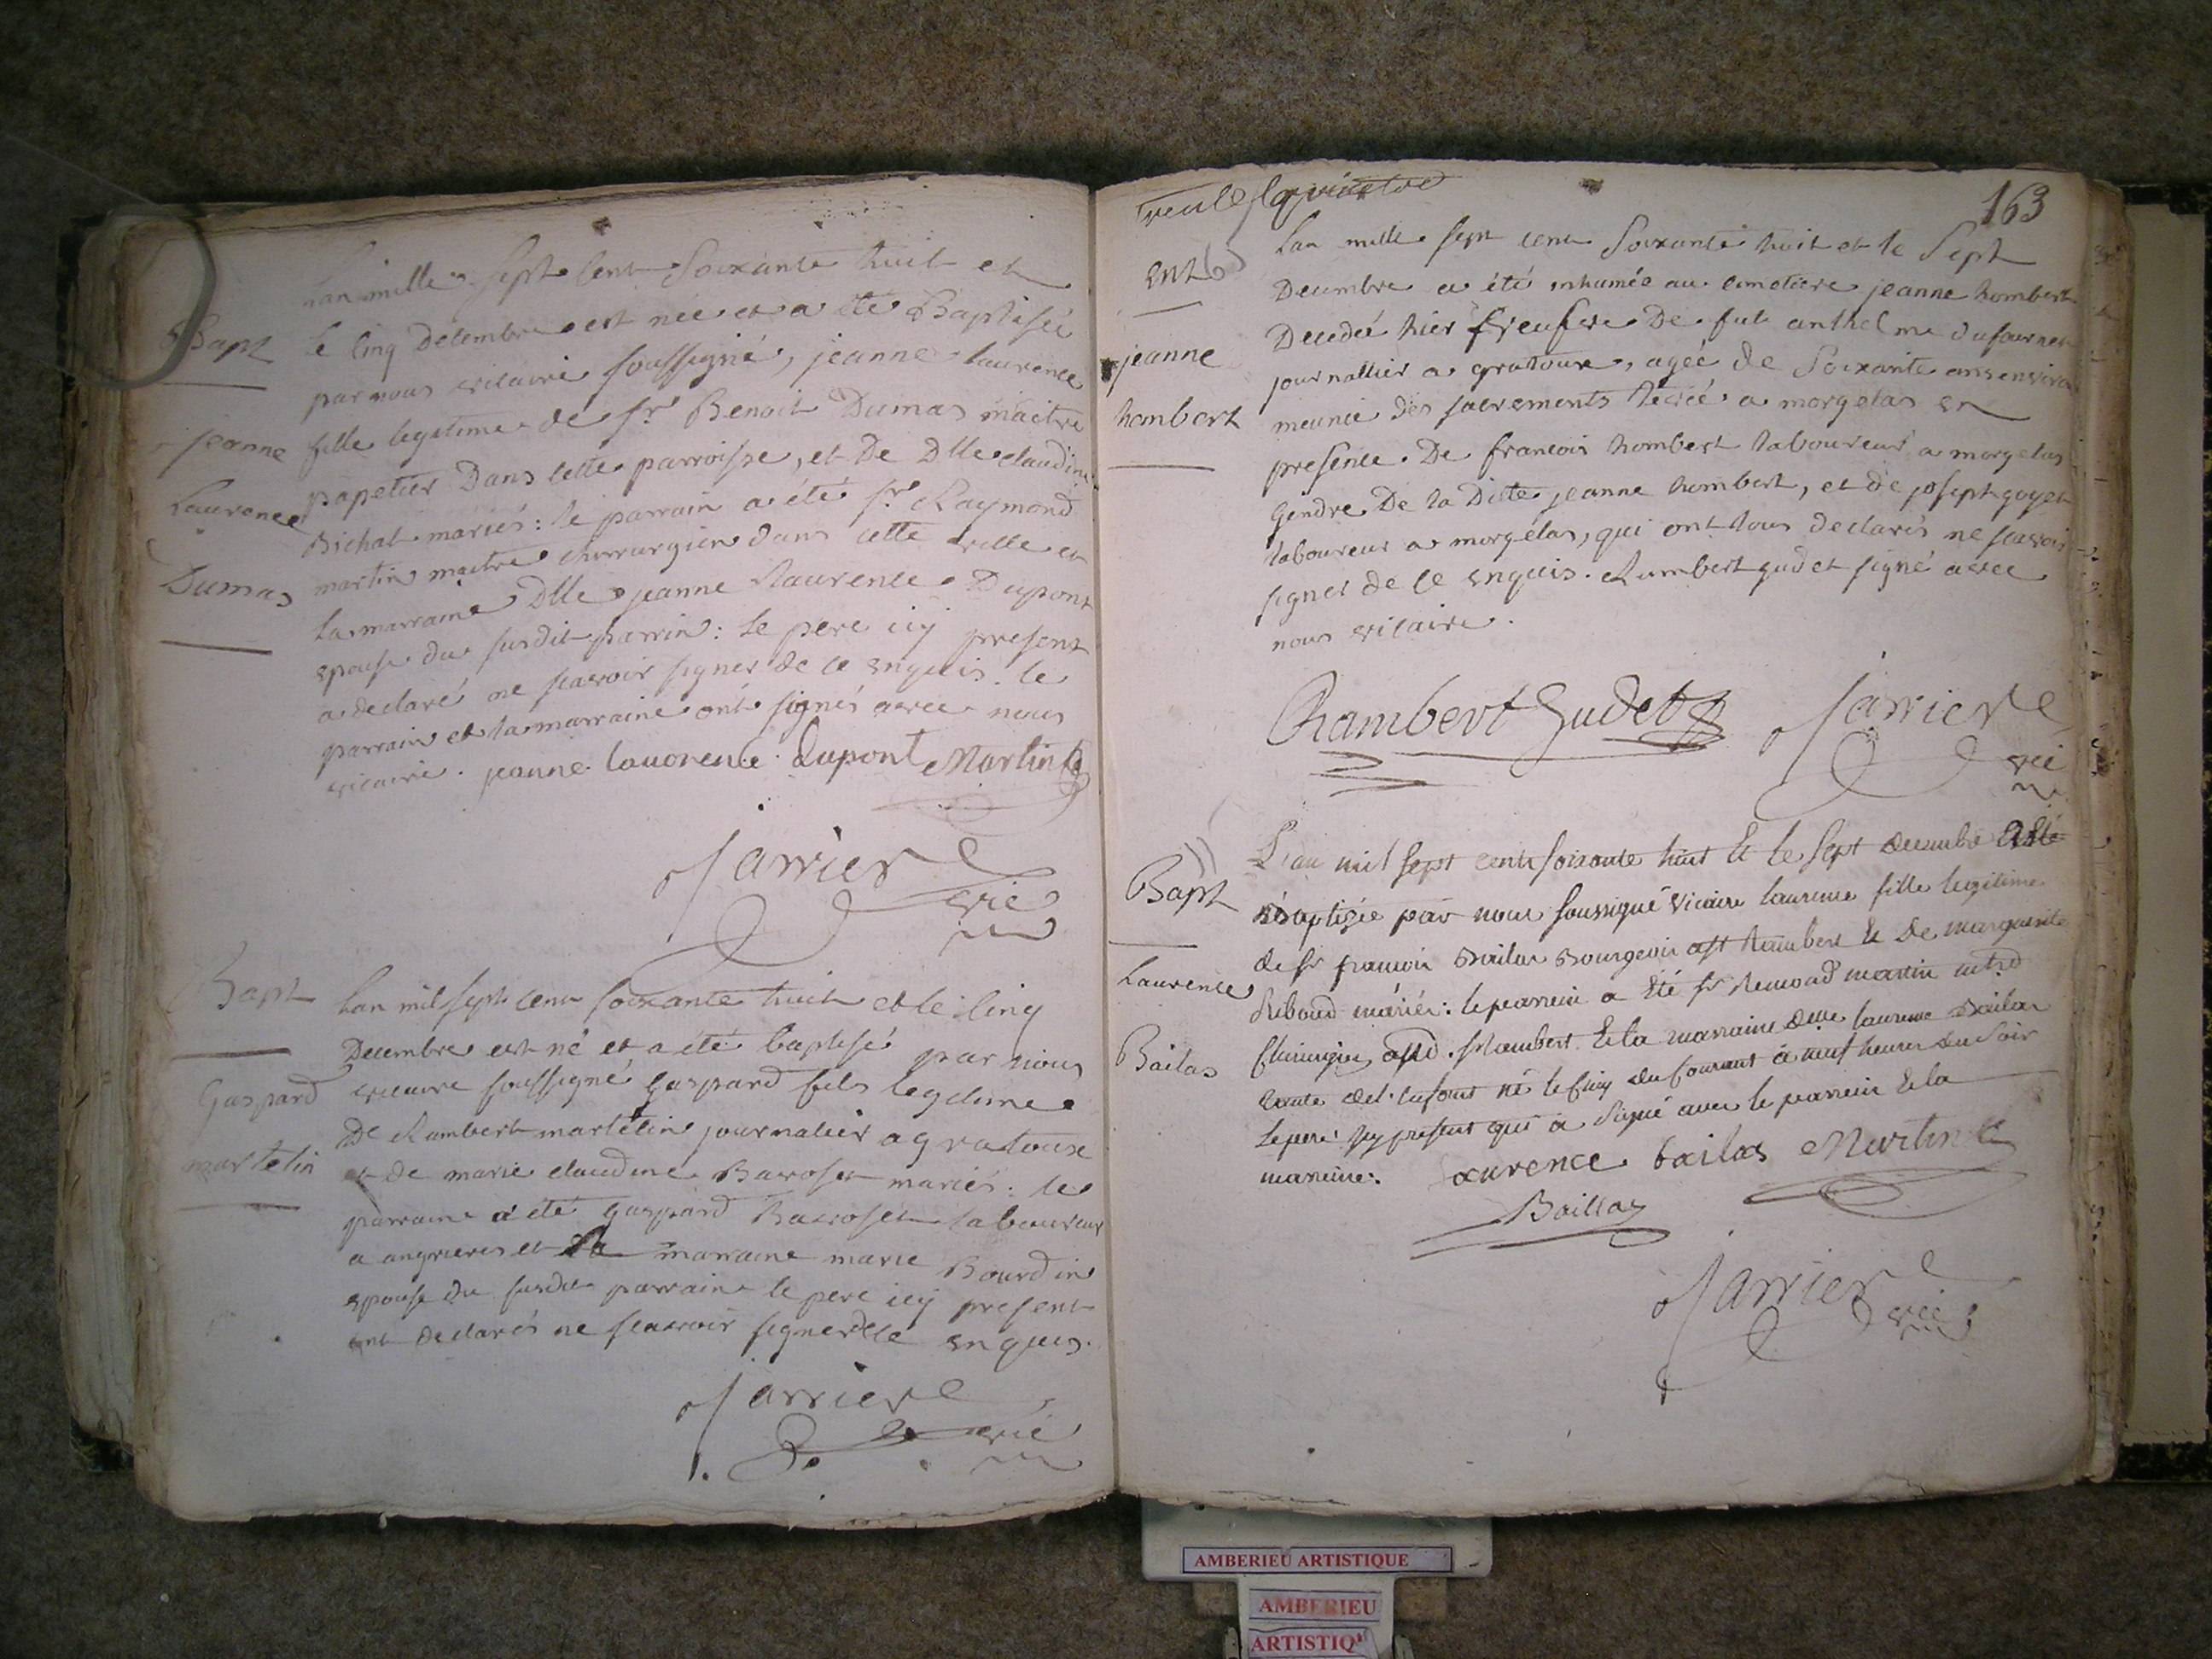 Bapt
jeanne
Laurence
Dumas
Lan mille sept cent Soixante huit et
le cinq Decembre est née et a été Baptisée
par nous vicaire soussigné, jeanne laurence
fille legitime de sr Benoit Dumas maitre
papetier Dans cette parroisse, et De Dlle claudine
Bichat mariés: le parrain a été sr Raymond
martin maitre chirurgien dans cette ville et
la marraine Dlle jeanne Laurence Dupont
epouse du susdit parrin: le pere icy present
a declaré ne scavoir signer de ce enquis. le
parrain et la marraine ont signés avec nous
vicaire. jeanne lauorence dupont Martin
Jarrier
vic
Bapt
Gaspard
martelin
Lan mil sept cent soixante huit et le cinq
Decembre est né et a été baptisé par nous
vicaire soussigné gaspard fils legitime
De Rambert martelin journalier a gratoux
et de marie claudine Baroset mariés: le
parrain a été gaspard Baroset laboureur
a angrieres et la marraine marie Bourdin
epouse du susdit parrain le pere icy present
ont declarés ne scavoir signer de ce enquis.
Jarrier
vic
163
Ent
jeanne
hombert
Lan mille sept cent Soixante huit et le Sept
Decembre a été inhumée au cimetiere jeanne hombert
Decedée hier veufve De fut anthelme dufournet
journallier a gratoux, agée de Soixante ans environ
meunie des sacrements a morgelas en
presence De francois hombert laboureur a morgelas
Gendre De la Ditte jeanne hombert, et de joseph goyet
laboureur a morgelas, qui ont tous declarés ne scavoir
signer de ce enquis. Rambert gudet signé avec
nous vicaire.
Rambert Gudet Jarrier
vic
Bapt
Laurence
Bailas
L'an mil sept cent soixante huit et le sept decembre a été
Baptisée par nous soussigné vicaire laurence fille legitime
de sr francois Bailas Bourgeois a st Rambert et de marguerite
Riboud mariés: le parrein a été sr Remond martin
Chirurgien a st Rambert et la marraine delle laurence Bailas
tante del enfant né le cinq du courant à neuf heures du soir
le pere icy present qui a signé avec le parrein et la
mareine. Laurence bailas Martin
Baillas
Jarrier
vic
AMBERIEU ARTISTIQUE
AMBERIEU
ARTISTIQ